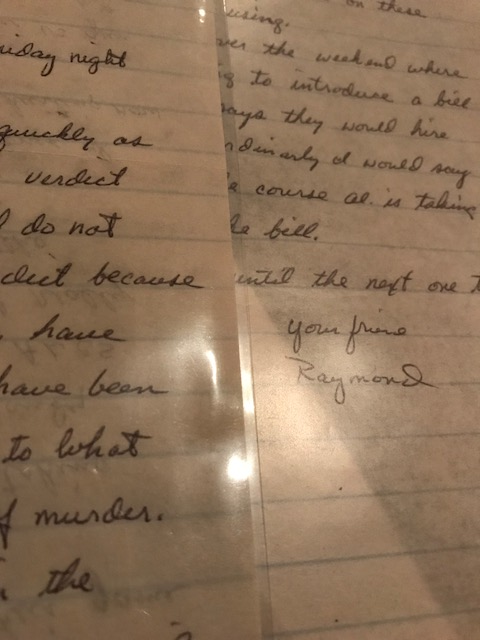 iday night
quickly as
verdict
I do not
dict because
have
have been
to what
of murder.
the
on these
using.
over the weekend where
to introduce a bill
says they would hire
rdinarly I would say
course al. is taking
bill.
until the next one
your friend
Raymond